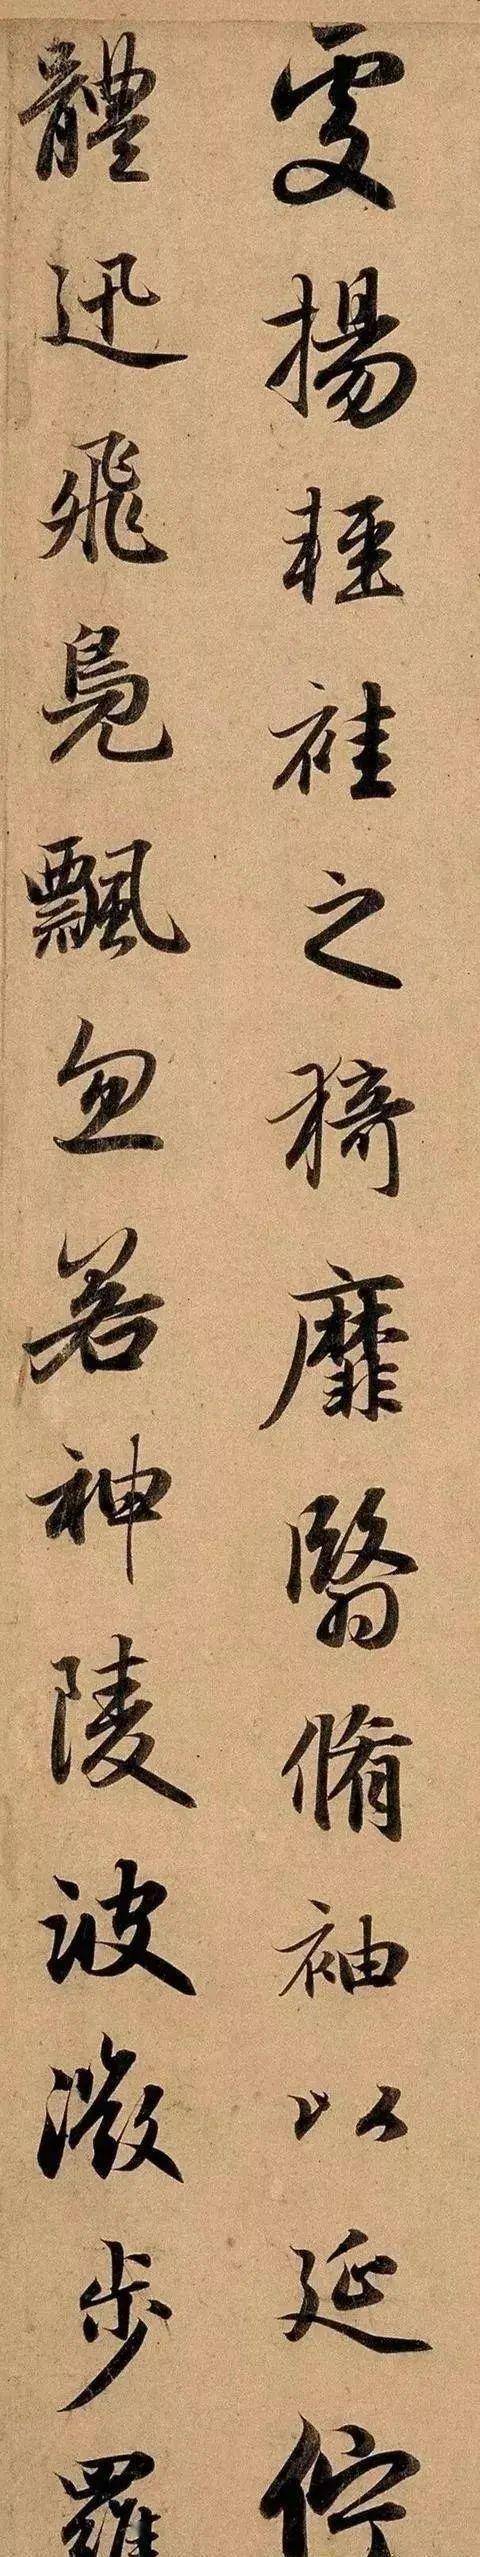 處揚輕袿之猗靡翳脩袖以延佇
體迅飛鳧飄忽若神陵波微步羅